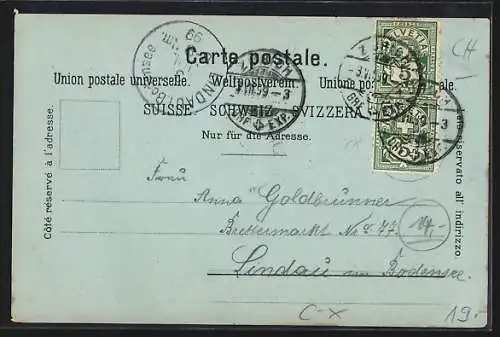 CH
Carte postale.
Union postale universelle. Weltpostverein. Unione postale universale.
SUISSE. SCHWEIZ. SVIZZERA.
Nur für die Adresse.
Côté réservé à l'adresse.
Lato riservato all' indirizzo.
HELVETIA
5
ZÜRICH
BRF. EXP.
LINDAU Bodensee
99
Frau
Anna Goldbrunner
Brettermarkt No 77
Lindau im Bodensee.
14,-
C-X
19.-